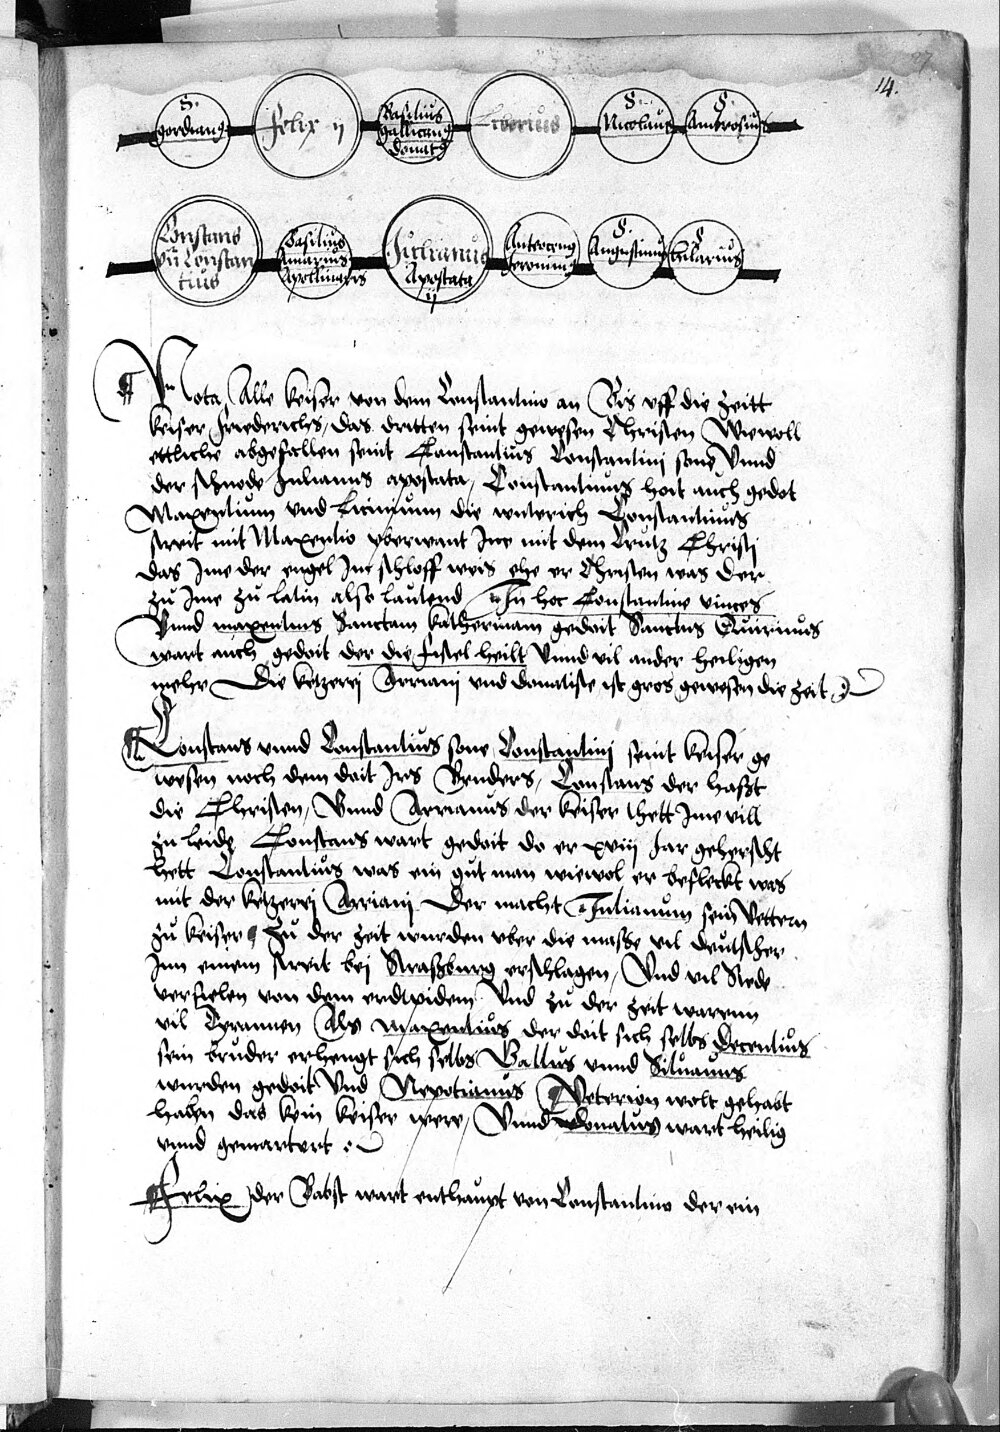 14.
S. gordianus
Felix ij
Basilius gallicanus donatus
Liberius
S. Nicolaus
S. Ambrosius
Constans
vnd Constan
tius
Basilius
Amarius
Apollinaris
Julianus
Apostata
ij
Jeronimus
S. Augustinus
S. hilarius
Nota Alle keiser von dem Constantino an Bis vff die zeitt
keiser Friederichs, das dritten seint gewesen Christen Wiewoll
ettliche abgefallen seint Constantius Constantinj sone Vnnd
der schnode Julianus apostata, Constantinus hait auch gedot
Maxentium vnd Licinium die wuterich Constantinus
streit mit Maxentio vberwant Ine mit dem Crutz Christj
das Ime der engel Im schloff weis ehe er Christen was Der
zu Ime zu latin also lautend In hoc Constantine vinces
Vnnd maxentius Sanctam katherinam gedoit Sanctus Quirinus
wart auch gedoit der die fistel heilt Vnnd vil ander heiligen
mehr Die ketzerej Arrianj vnd donatiste ist gros gewesen die zeit
Constans vnnd Constantius sone Constantinj seint keiser ge
wesen noch dem doit Irs Bruders, Constans der haßt
die Christen, Vnnd Arrianus der keiser thett Ime vill
zu leide Constans wart gedoit do er xviij Jar geherscht
hett Constantius was ein gut man wiewol er befleckt was
mit der ketzerej Arrianj Der macht Julianum sein Vettern
zu keiser Zu der zeit wurden vber die masse vil deutscher
Inn einem streit bej Straßburg erschlagen, Vnd vil Stede
verfielen von dem erdtpidem Vnd zu der zeit warenn
vil Tyrannen Als Maxentius der doit sich selbs Decentius
sein bruder erhengt sich selbs Gallus vnnd Siluanus
wurden gedoit Vnd Nepotianus Veterion wolt gehabt
haben das kein keiser were, Vnnd donatus wart heilig
vnnd gemartert
Felix der Babst wart enthaupt von Constantino der ein